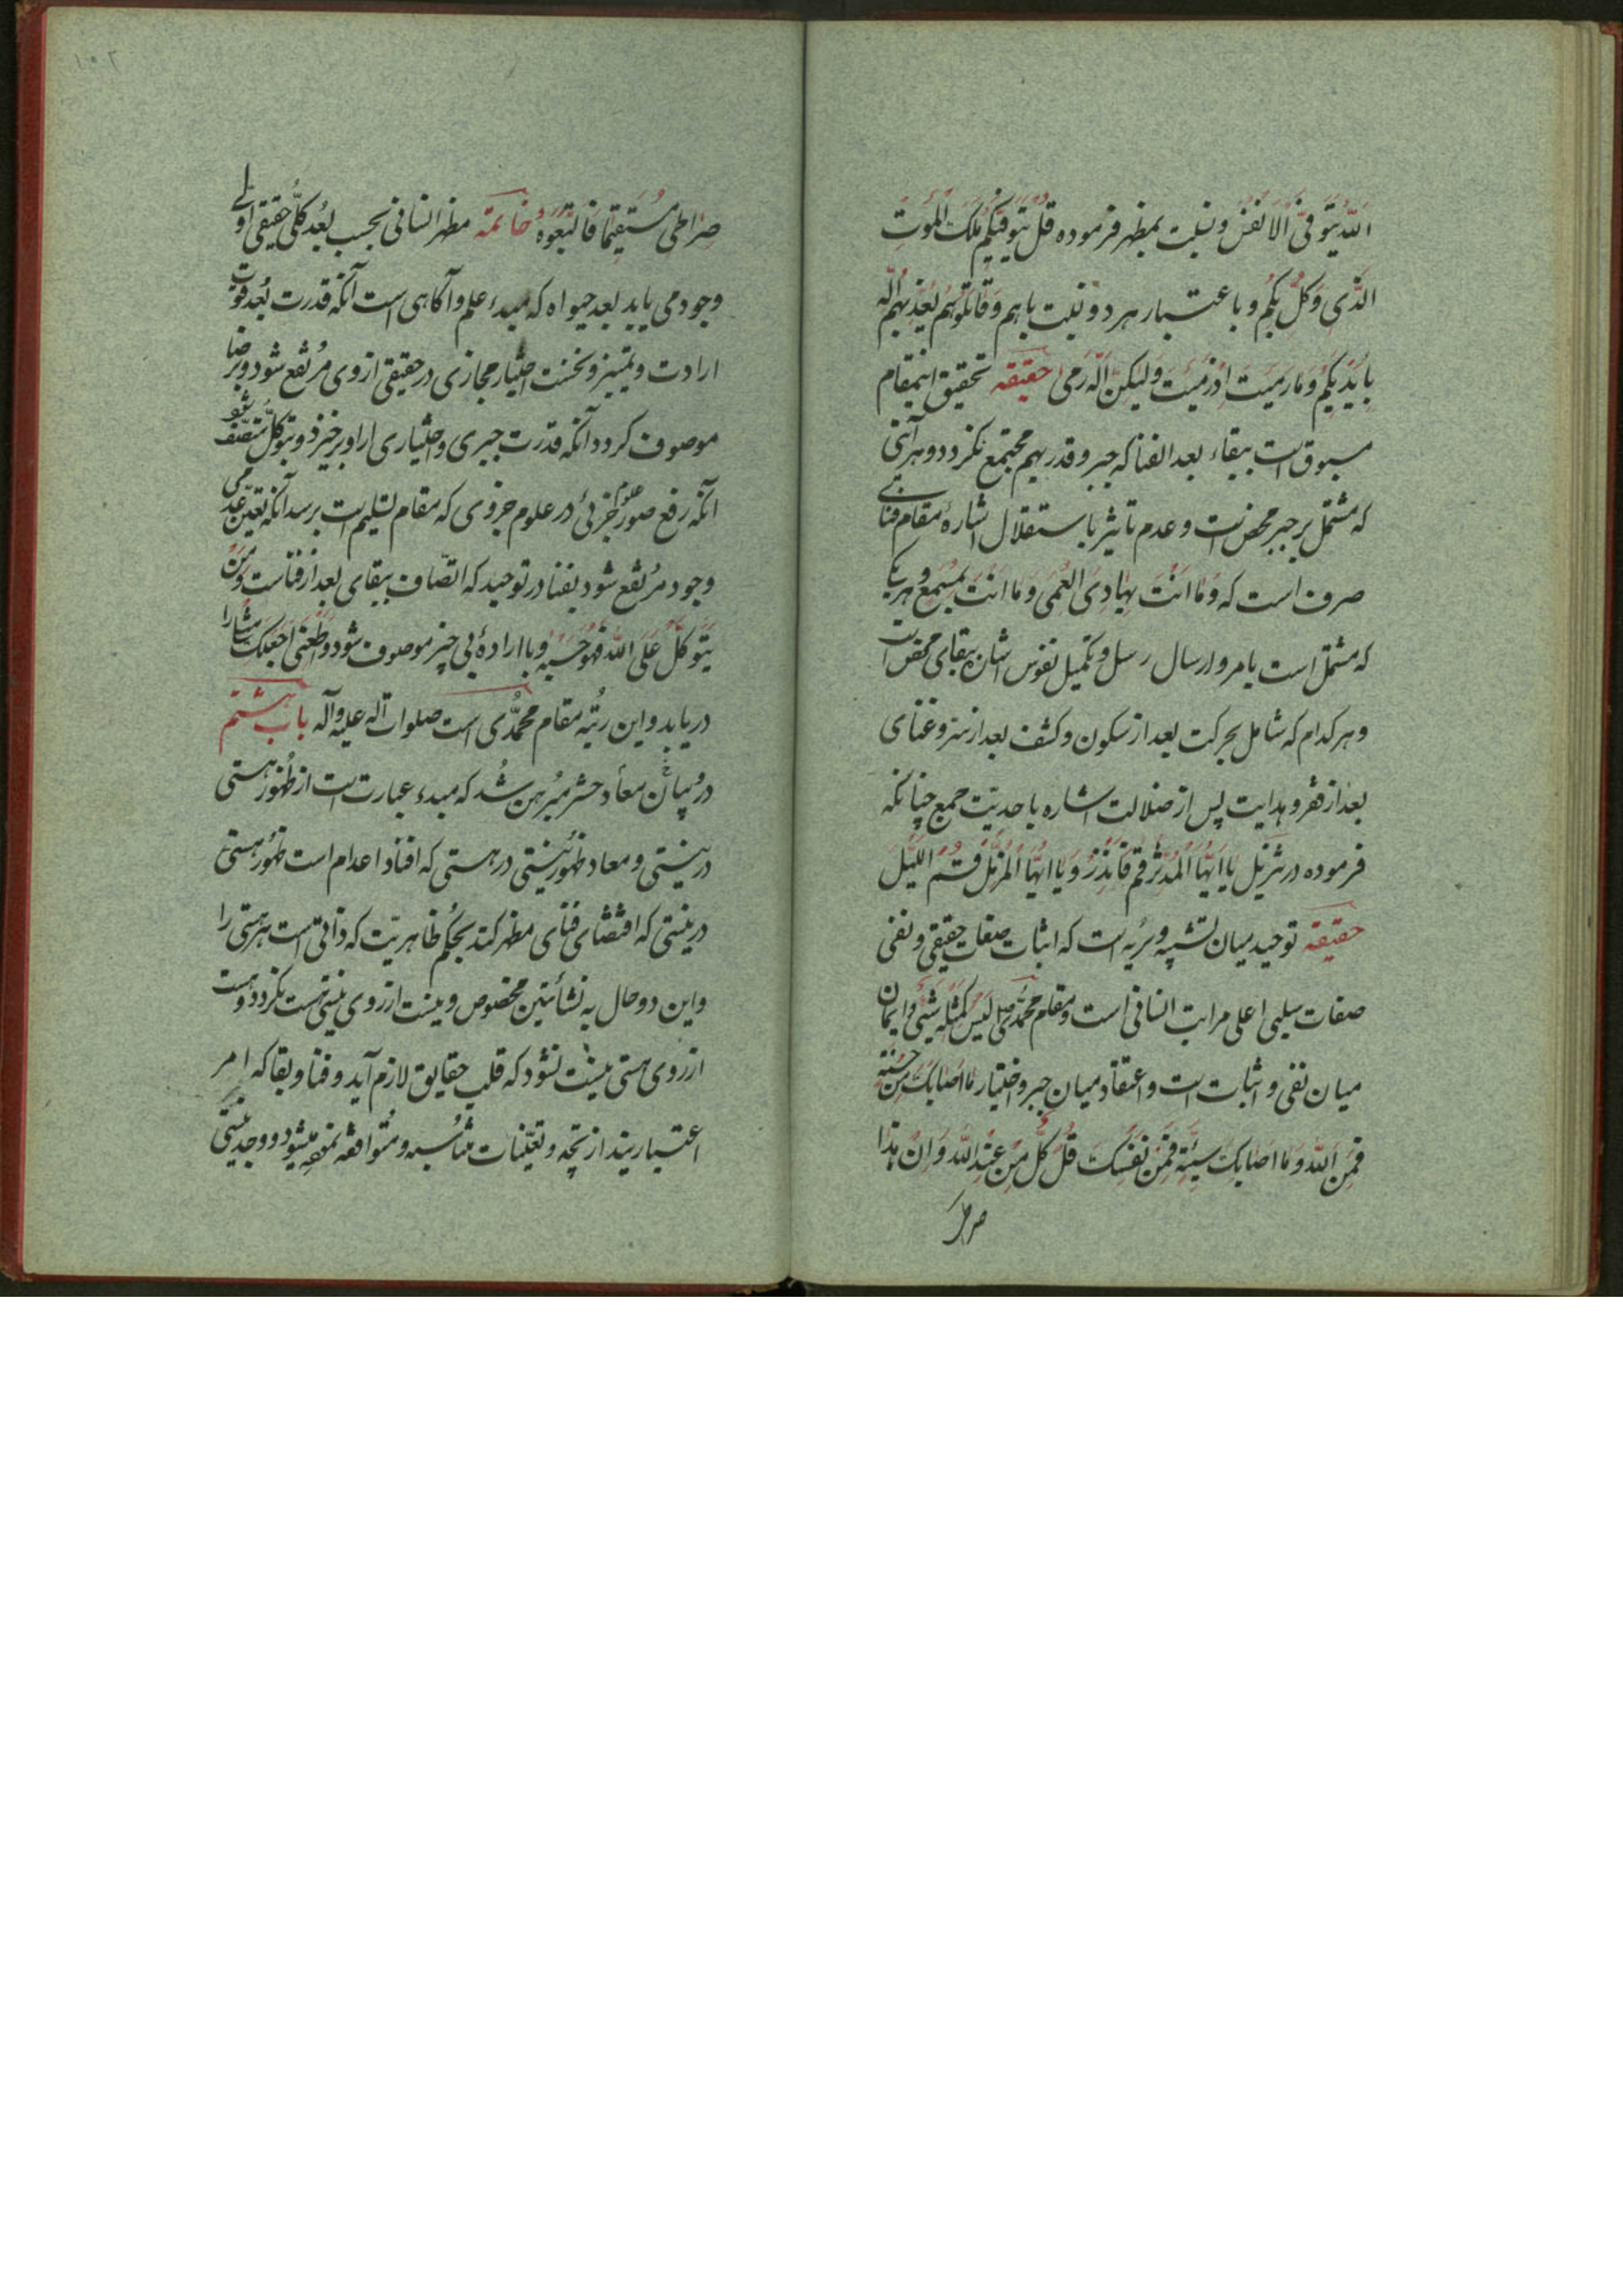 اَللّهُ یَتَوَفَّی الْاَنْفُسَ و نسبت بمظهر فرموده قُلْ یَتَوَفّیکُمْ مَلَکُ الْمَوْتِ
الَّذی وُکِّلَ بِکُمْ و باعتبار هر دو نسبت باهم وَ قاتِلُوهُمْ یُعَذِّبْهُمُ اللّه
بِاَیْدیکُمْ وَ ما رَمَیْتَ اِذْ رَمَیْتَ وَلیکِنَّ اللّهَ رَمی حقیقه تحقیق اینمقام
مسبوق است ببقاء بعد الفنا که جبر و قدر بهم مجتمع نکردد و هر آیتی
که مشتمل بر جبر محض است و عدم تاثیر باستقلال اشارهٔ مقام فنای
صرف است که وَ ما اَنْتَ بِهادِی الْعُمْیِ وَ ما اَنْتَ بِمُسْمِعٍ و هر یکی
که مشتمل است بامر و ارسال رسل و تکمیل نفوس اشان ببقای محض است
و هر کدام که شامل بحرکت بعد از سکون و کشف بعد از ستر و غنای
بعد از فقر و هدایت پس از ضلالت اشاره باحدیّت جمع چنانکه
فرموده در تنزیل یا اَیُّهَا الْمُدَّثِّر قُمْ فَاَنْذِرْ وَ یا اَیُّهَا الْمُزَّمِّلُ قُمِ اللَّیْلَ
حقیقه توحید میان تشبیه و تنزیه است که اثبات صفات حقیقی و نفی
صفات سلبی اعلی مراتب انسانی است و مقام محمّدی ص لَیْسَ کَمِثْلِه شَیْءٌ و ایمان
میان نفی و اثبات است و اعتقاد میان جبر و اختیار ما اَصابَکَ مِنْ حَسَنَةٍ
فَمِنَ اللّهِ وَ ما اَصابَکَ سَیِّئَةٍ فَمِنْ نَفْسِکَ قُلْ کُلٌّ مِنْ عِنْدِ اللّه وَ اَنَّ هذا
صراطی
۱۰۲
صِراطی مُسْتَقیماً فَاتَّبِعُوهُ خاتمة مظهر انسانی بحسب بُعد کلّی حقیقی اولی
وجود می یابد بعد حیواه که مبدء علم و آکاهی است آنکه قدرت بُعد قوّت
ارادت و تمییز و نخست اختیار مجازی در حقیقی از وی مرتفع شود و برضا
موصوف کردد آنکه قدرت جبری و اختیاری از او برخیزد و بتوکّل متّصف شود
آنکه رفع صور علوم جزئی در علوم جزوی که مقام تسلیم است برسد آنکه تعیّن عدمی
وجود مرتفع شود بفنا در توحید که اتّصاف ببقای بعد از فناست وَ مَنْ
یَتَوَکَّلْ عَلَی اللّه فَهُوَ حَسْبُه و باارادهٔ بی چیز موصوف شود وَ اَطِعْنی اَجْعَلْکَ
دریابد و این رتبه مقام محمّدی است صلوات اللّه علیه و آله باب هشتم
در بیان معاد و حشر مبرهن شد که مبدء عبارت است از ظهور هستی
در نیستی و معاد ظهور نیستی در هستی که افناد اعدام است ظهور هستی
در نیستی که اقتضای فنای مظهر کند بحکم ظاهریّت که ذاتی است هر هستی را
و این دو حال به نشأتین مخصوص و نیست از روی نیستی هست نکردد و هست
از روی هستی نیست نشود که قلب حقایق لازم آید و فنا و بقا که امر
اعتباریند از تجدّد و تعیّنات متشابه و متوافقه نمیشود و وجد نیستی